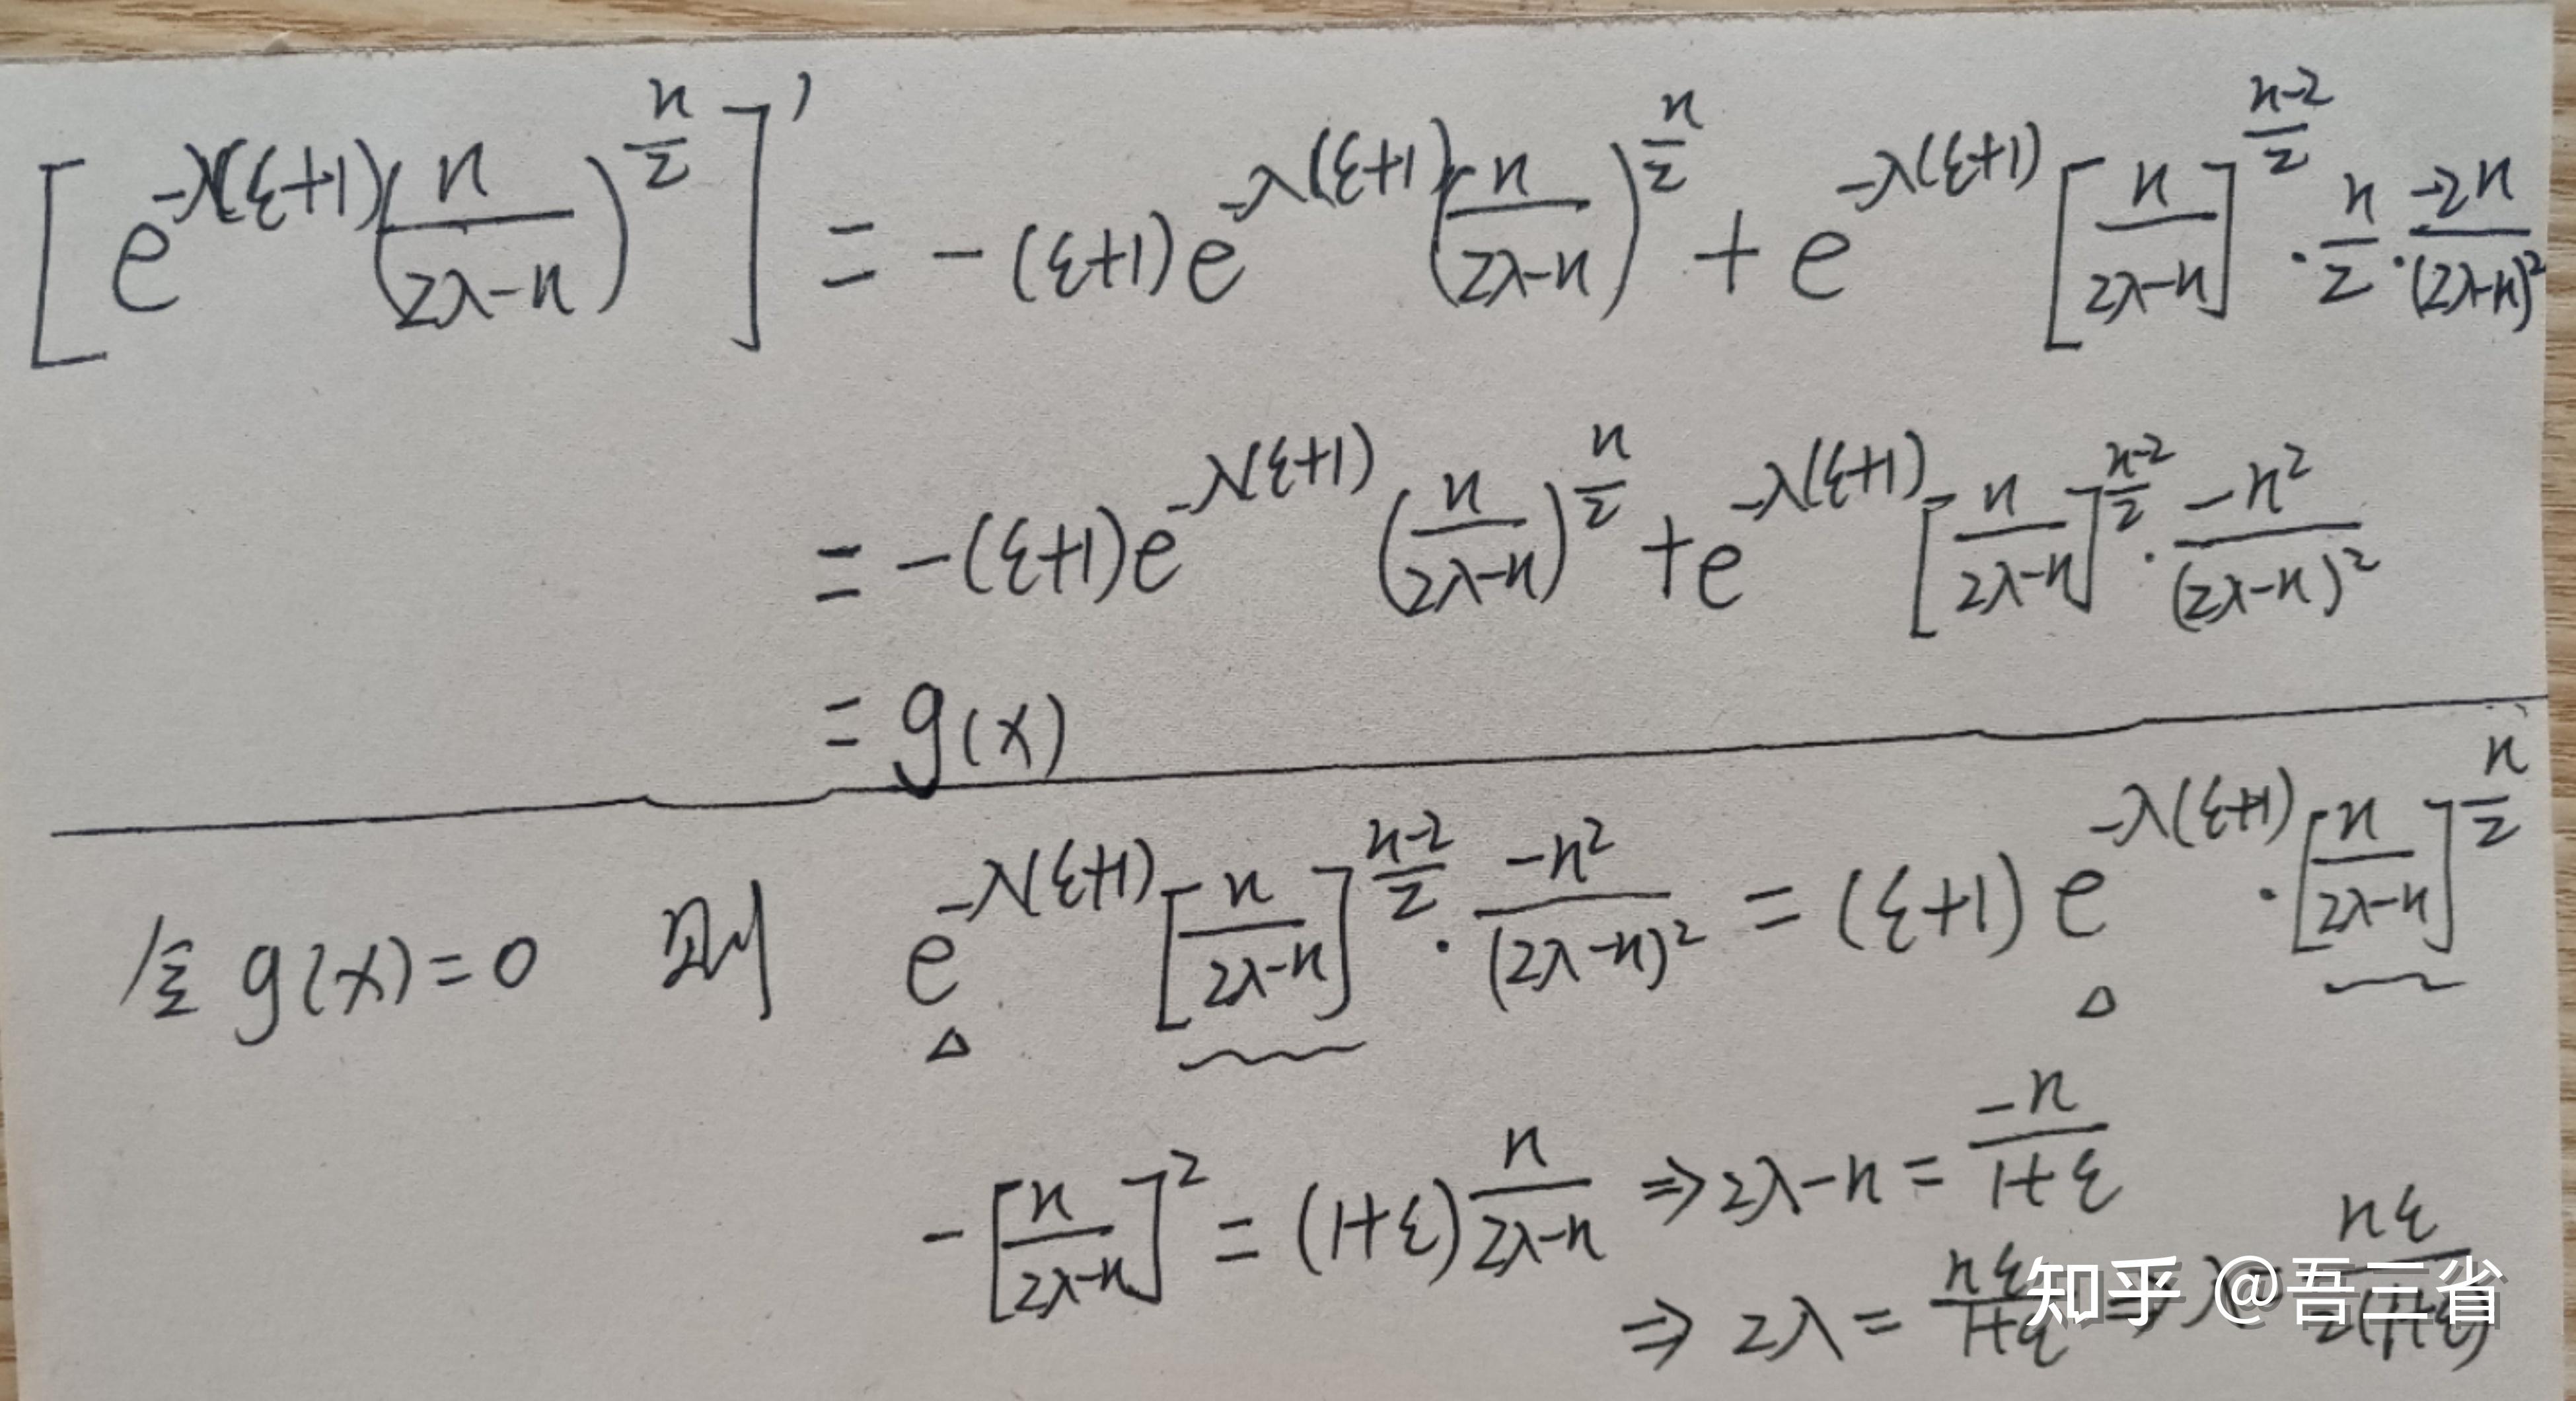 [e^{-λ(ε+1)} (n/(2λ-n))^{n/2}]' = -(ε+1)e^{-λ(ε+1)} (n/(2λ-n))^{n/2} + e^{-λ(ε+1)} [n/(2λ-n)]^{(n-2)/2} · n/2 · -2n/(2λ-n)^2
= -(ε+1)e^{-λ(ε+1)} (n/(2λ-n))^{n/2} + e^{-λ(ε+1)} [n/(2λ-n)]^{(n-2)/2} · -n^2/(2λ-n)^2
= g(x)
令 g(x)=0 则 e^{-λ(ε+1)} [n/(2λ-n)]^{(n-2)/2} · -n^2/(2λ-n)^2 = (ε+1) e^{-λ(ε+1)} · [n/(2λ-n)]^{n/2}
-[n/(2λ-n)]^2 = (1+ε) n/(2λ-n) ⇒ 2λ-n = -n/(1+ε)
⇒ 2λ = nε/(1+ε) ⇒ λ= nε/(2(1+ε))
知乎 @吾三省